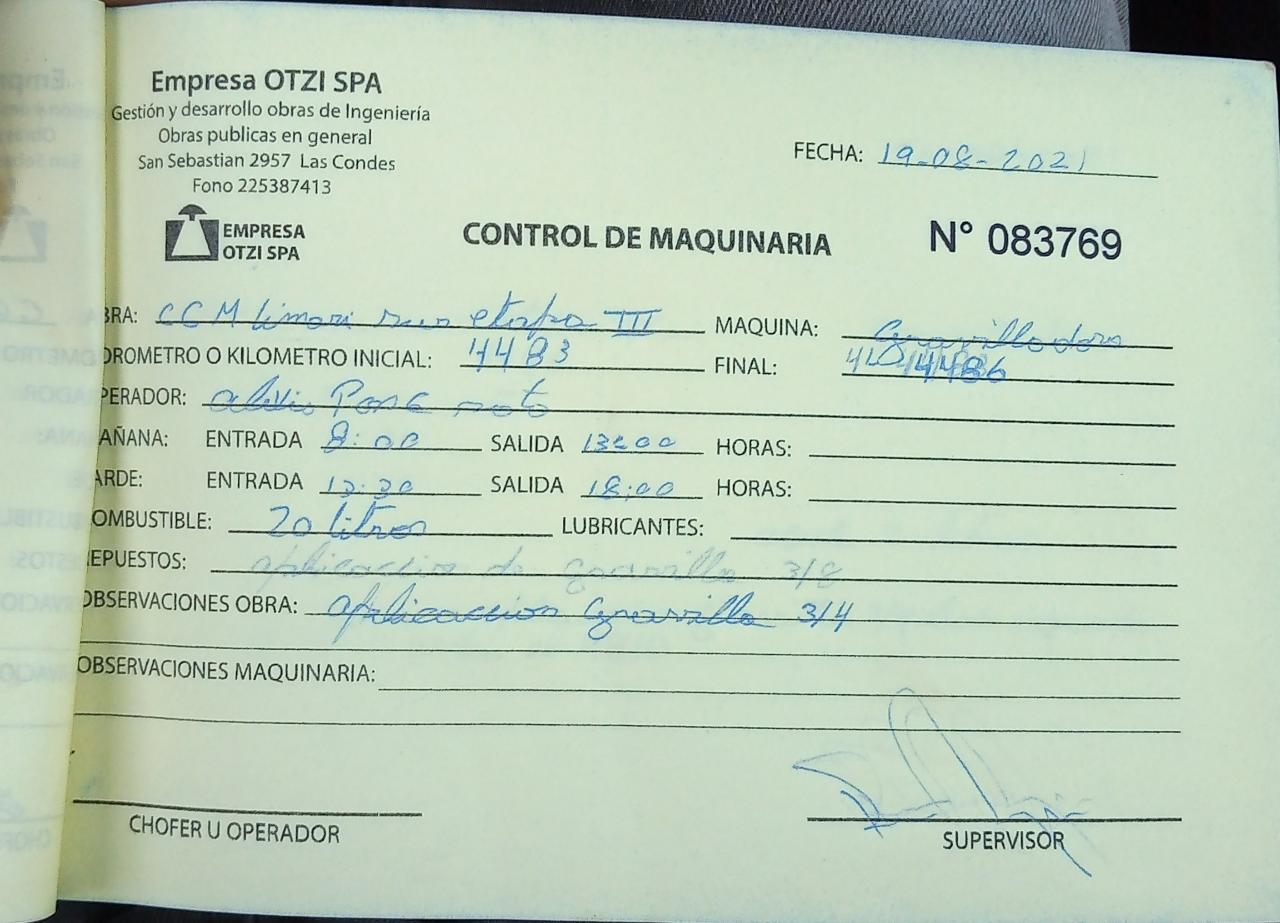 Empresa OTZI SPA
Gestión y desarrollo obras de Ingeniería
Obras publicas en general
San Sebastian 2957 Las Condes
Fono 225387413
FECHA: 19-08-2021
EMPRESA
OTZI SPA
CONTROL DE MAQUINARIA
N° 083769
BRA: CCM limari etapa III MAQUINA: Gravilladora
OROMETRO O KILOMETRO INICIAL: 4483 FINAL: 4486
PERADOR:
AÑANA: ENTRADA 8:00 SALIDA 13:00 HORAS:
ARDE: ENTRADA 13:30 SALIDA 18:00 HORAS:
OMBUSTIBLE: 20 litros LUBRICANTES:
EPUESTOS: aplicacion de gravilla 3/8
OBSERVACIONES OBRA: aplicaccion Gravilla 3/4
OBSERVACIONES MAQUINARIA:
CHOFER U OPERADOR
SUPERVISOR